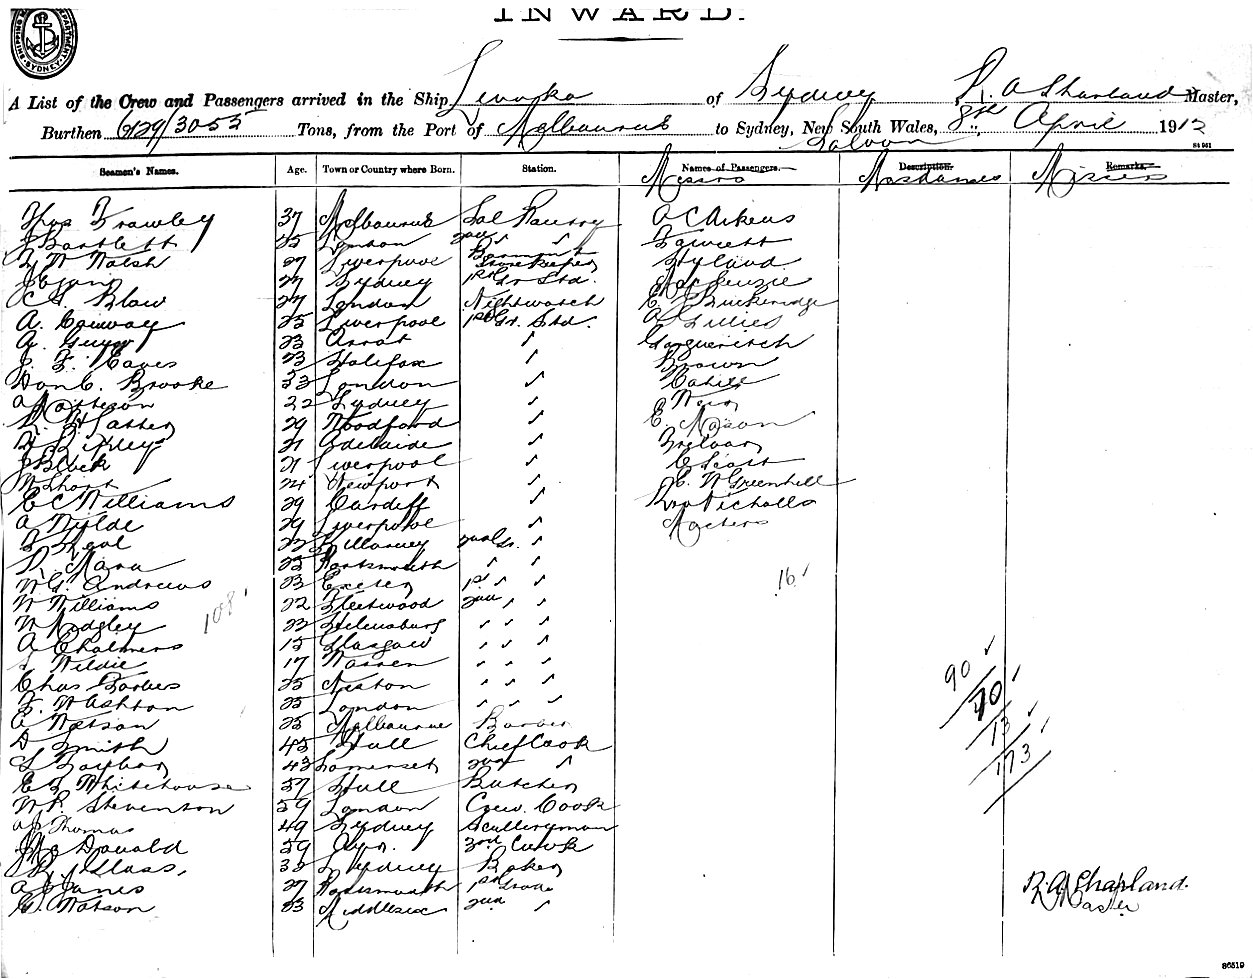 INWARD.
SHIPPING DEPARTMENT SYDNEY
A List of the Crew and Passengers arrived in the Ship Levuka of Sydney R. A Sharland Master,
Burthen 6129/3055 Tons, from the Port of Melbourne to Sydney, New South Wales, 8th April 1912
Saloon
S4 961
Seamen's Names. Age. Town or Country where Born. Station. Names of Passengers. Description. Remarks.
Messrs Mesdames Misses
Thos Frawley 37 Melbourne Sal Pantry A C Aikens
J Bartlett 35 London 2nd " " Fawcett
W Walsh 27 Liverpool Storekeeper Hyland
27 Sydney 1st Gr Std. MacKenzie
Blaw 27 London Nightwatch E Buckeridge
A. Conway 25 Liverpool 1st Gr. Std. A Lillies
A. 23 Arrat " Gargueritch
J. F. Eaves 23 Halifax " Brown
Don C. Brooke 33 London " Cahill
A Matheson 22 Sydney " Weir
29 Woodford " E. Mason
21 Adelaide " Treloar
J Black 21 Liverpool " C Scott
W Short 24 Newport " E. W Greenhill
E C Williams 29 Cardiff " Nicholls
A Wylde 29 Liverpool " Masters
Neal 22 Killarney 2nd Gr. "
Mara 22 Portsmouth " "
W G. Andrews 23 Exeter 1st " " 16
W Williams 22 Fleetwood 2nd " " 108
W Midgley 23 Helensburg " " "
A Chalmers 15 Glasgow " " " 90
Wildie 17 Warren " " "
Chas Forbes 25 Neston " " " 70
F. W Ashton 25 London " " "
A Watson 25 Melbourne Barber 13
D Smith 45 Hull Chief Cook
43 Somerset 2nd " 173
E Whitehouse 37 Hull Butcher
W P. Stevenson 59 London Crew. Cook
A J Thomas 49 Sydney Sculleryman
J Mc Donald 29 Ayr. 3rd Cook
R. Glass. 35 Sydney Baker
A J Janes 27 Portsmouth 1st Grade R. A Sharland.
G. Watson 23 Middlesex 2nd " Master
86519